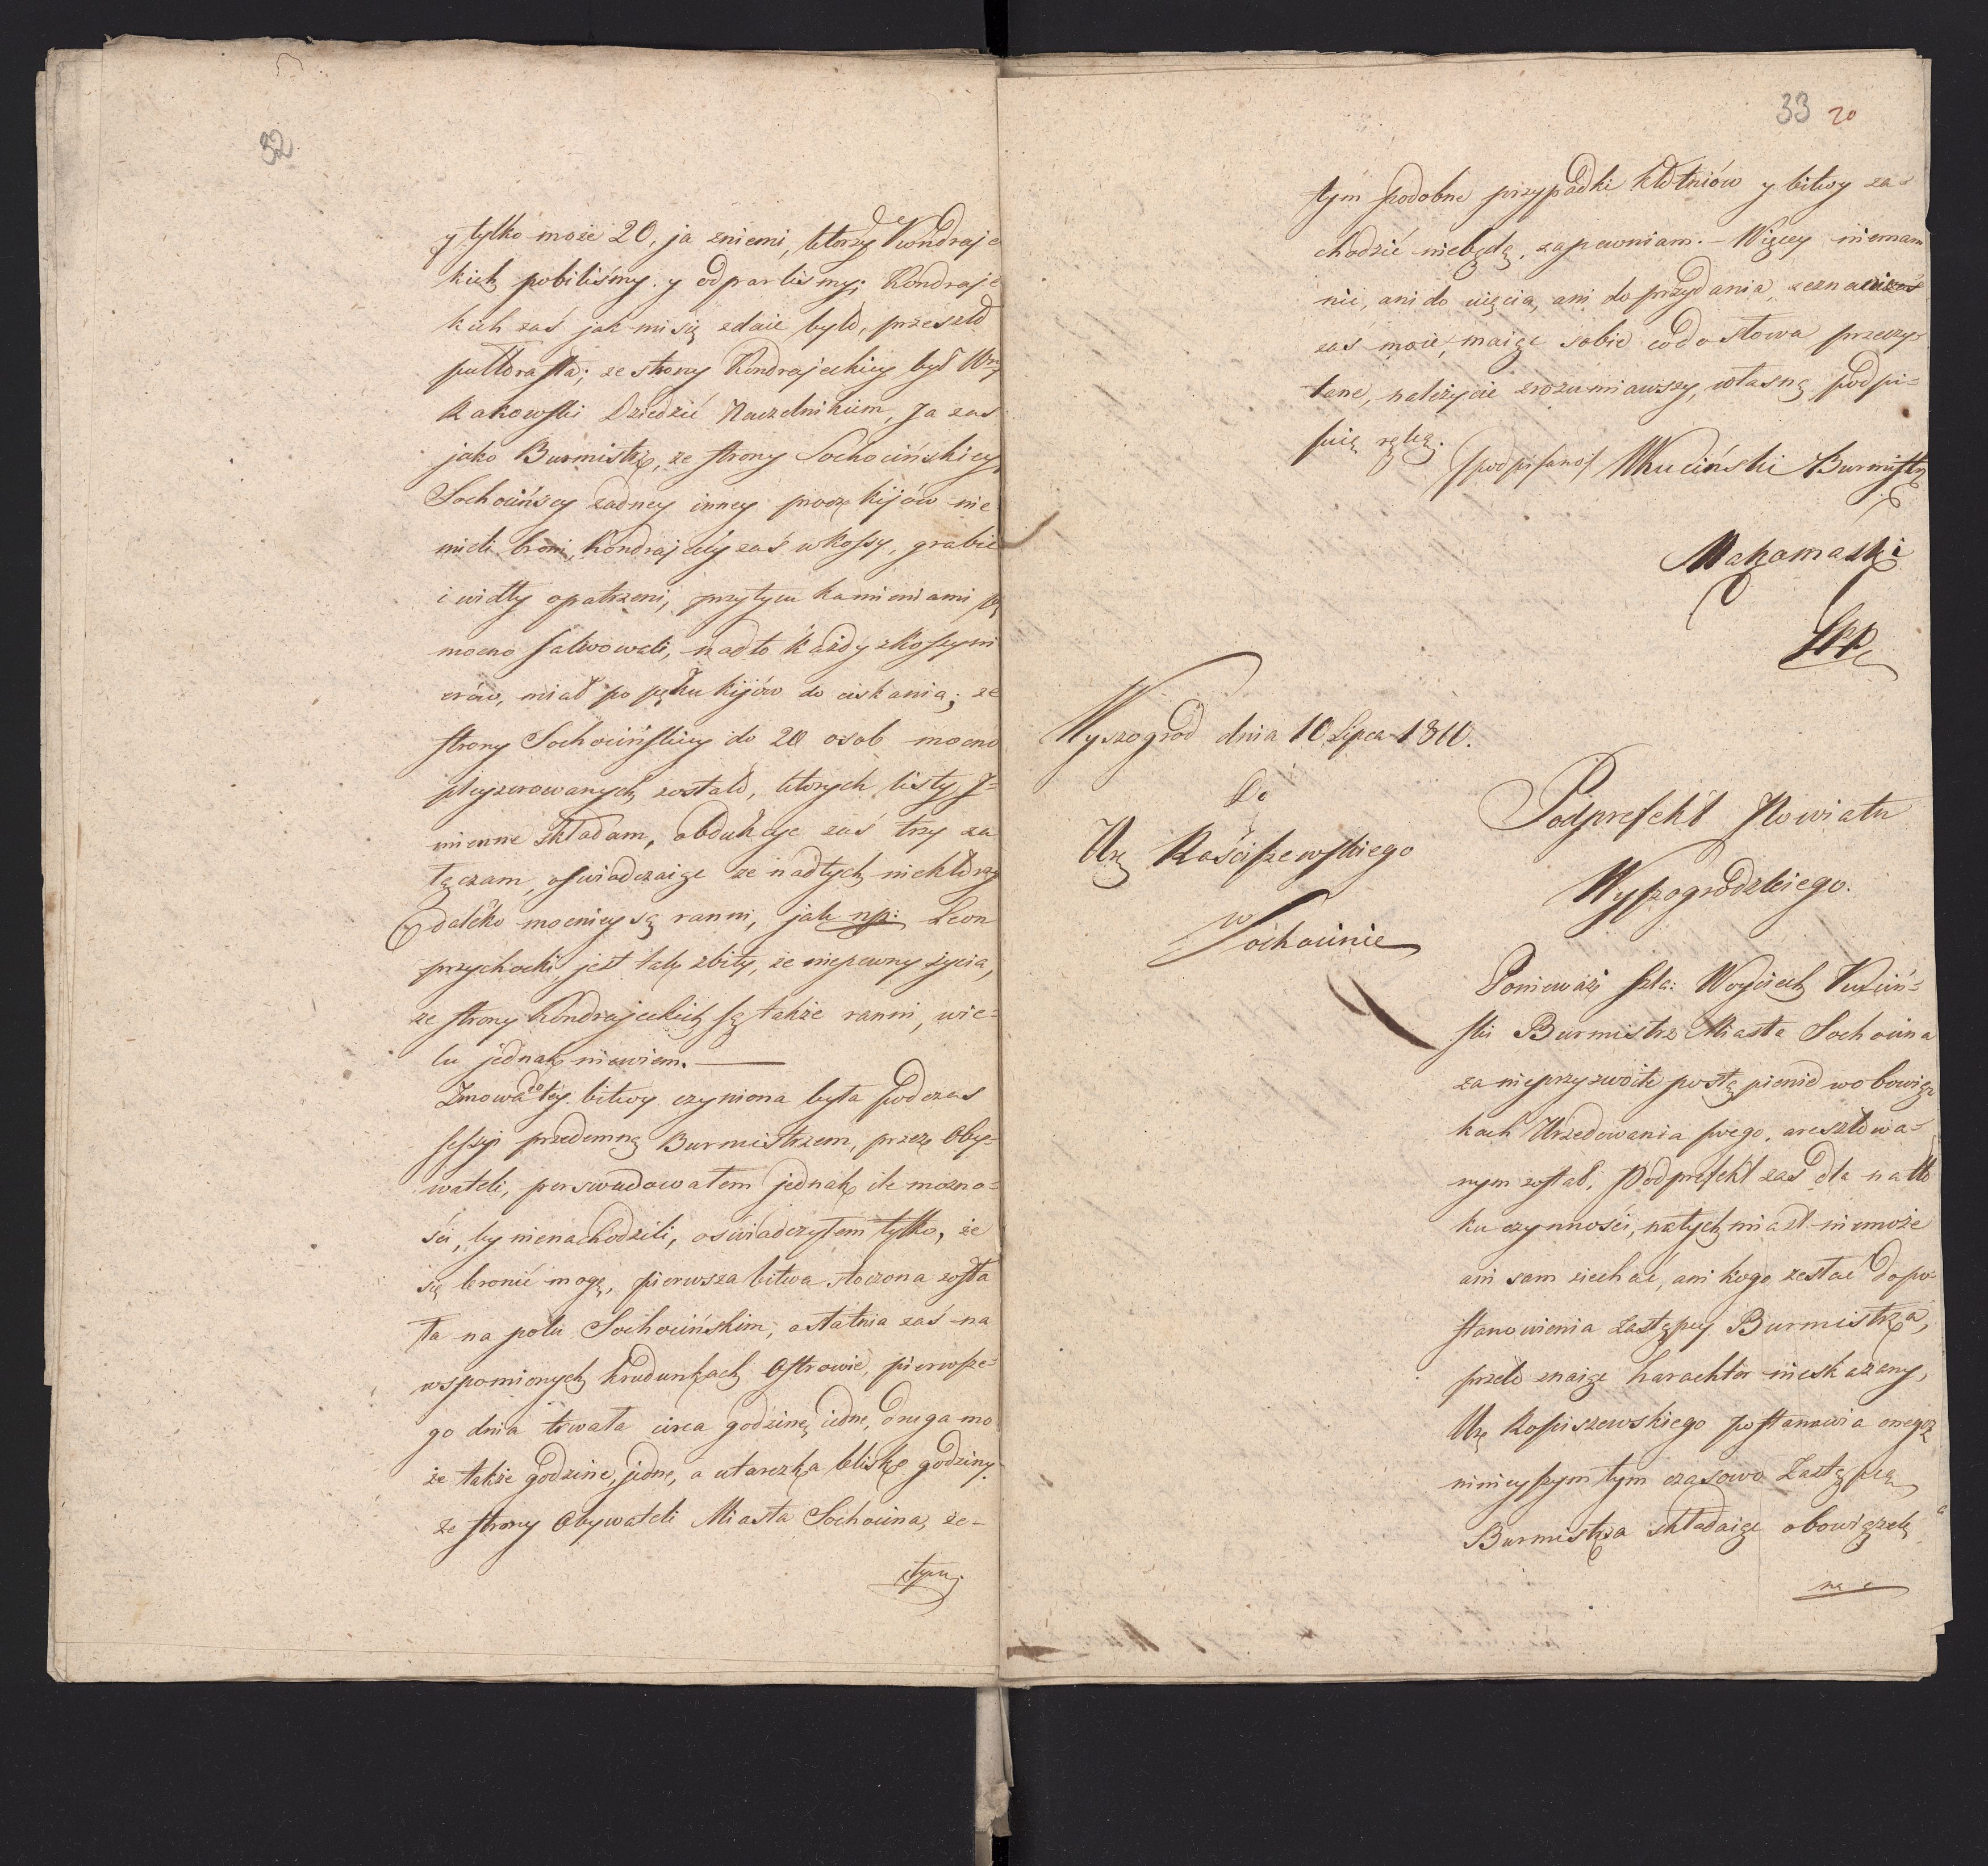 32
y tylko może 20, ja zniemi, ktorzy Kondraje
kich pobiliśmy y odparliśmy; Kondraje
kich zaś jak mi się zdaie było, przeszło
pułtorasta; ze strony Kondrajeckiey był Wny
Rakowski Dziedzić Naczelnikiem, Ja zas
jako Burmistrz, ze strony Sochocińskiey,
Sochocińscy żadney inney procz kijów nie
mieli broni, Kondrajeccy zaś w kossy, grabie
i widły opatrzeni, przytym kamieniami się
mocno salwowali, nadto każdy z kossyni
erów, miał po pęku kijów do ciskania; ze
strony Sochocińskiey do 20 osob mocno
plejzerowanych zostało, ktorych listy J=
mienne składam, obdukcye zaś trzy za
łączam, oswiadczaiąc że nad tych niektorzy
daleko mocniey są ranni, jak np: Leon
przychocki jest tak zbity, że niepewny życia,
ze strony Kondrajeckich są także ranni, wie=
lu jednak niewiem. —
Zmowa do tej bitwy czyniona była podczas
sessyi przedemną Burmistrzem, przez Oby=
wateli, perswadowałem jednak ile możno=
ści, by nienachodzili, oswiadczyłem tylko, że
się bronić mogą, pierwsza bitwa stoczona zosta
ła na polu Sochocińskim; ostatnia zaś na
wspomionych Ostrowie, pierwsze=
go dnia trwała circa godzinę iedne, druga mo
że także godzine, jedne, a utarczka blisko godziny.
ze strony Obywateli Miasta Sochocina, że-
tym
33 20
tym podobne przypadki kłotniów y bitwy za=
chodzić niebędą, zapewniam. — Więcey niemam
nic, ani do uięcia, ani do przydania, zeznanie
zas moie, maiąc sobie co do słowa przeczy=
tane, należycie zrozumiawszy, własną podpi=
suię ręką.
(podpisano) WKuciński Burmistrz
Makamaski
SPP
Wyszogrod dnia 10 Lipca 1810.
Do
Ur Kościszewskiego
w
Sochocinie
Podprefekt Powiatu
Wyszogrodzkiego.
Ponieważ szla: Woyciech Kuciń=
ski Burmistrz Miasta Sochocina
za nieprzyzwoite postąpienie w obowiąz
kach Urzedowania swego, aresztowa=
nym został, Podprefekt zas dla natło
ku czynności, natychmiast niemoże
ani sam ziechać, ani kogo zesłać do po=
stanowienia zastępcy Burmistrza,
przeto znaiąc karachter nieskazany,
Ur Kościszewskiego postanawia onegoż
ninieyszym tymczasowo Zastępcą
Burmistrza składaiąc obowiązek
na